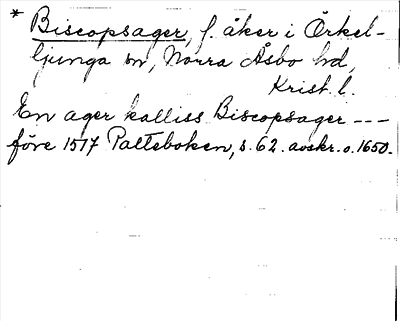 * Biscopsager, f. åker i Örkel-
ljunga sn, Norra Åsbo hd,
Krist. l.
En ager kalliss Biscopsager ---
före 1517 Palteboken, s. 62. avskr. o. 1650.